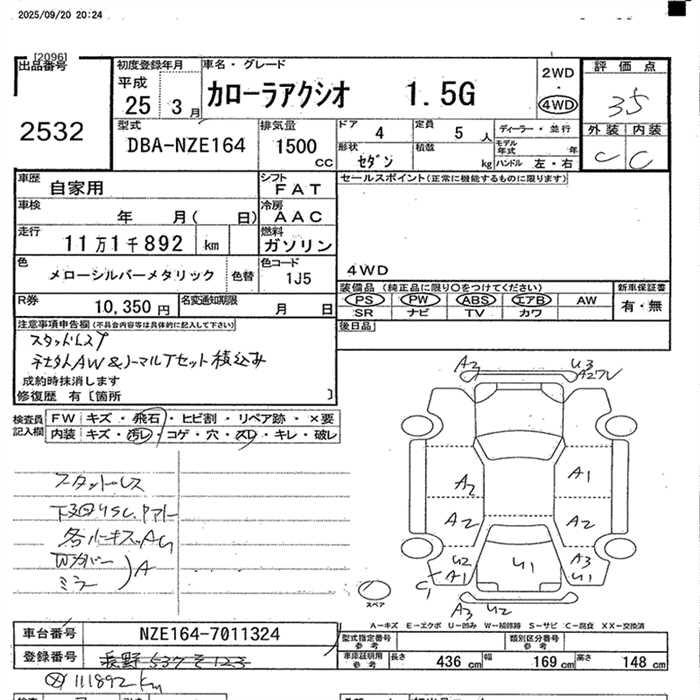 2025/09/20 20:24
[2096]
出品番号 初度登録年月 車名・グレード 2WD・4WD 評価点
2532 平成 25 3月 カローラアクシオ 1.5G 3.5
型式 排気量 ドア 4 定員 5人 ディーラー・並行 外装 内装
DBA-NZE164 1500cc 形状 セダン 積数 kg モデル年式 年 C C
ハンドル 左・右
車歴 自家用 シフト FAT セールスポイント(正常に機能するものに限ります)
車検 年 月( 日) 冷房 AAC
走行 11万1千892 km 燃料 ガソリン
色 メローシルバーメタリック 色替 色コード 1J5 4WD
R券 10,350円 名変通知期限 月 日
装備品(純正品に限り○をつけてください) 新車保証書
PS PW ABS エアB AW 有・無
SR ナビ TV カワ
後日品
注意事項申告欄(不具合内容等は具体的に記入して下さい)
スタッドレス
AW&ノーマルTセット積込み
成約時抹消します
修復歴 有〔箇所 〕
検査員記入欄 FW キズ・飛石・ヒビ割・リペア跡・×要
内装 キズ・汚レ・コゲ・穴・スレ・キレ・破レ
スタッドレス
Wカバー
ミラー
A
A2 U3
A2
A1
A2
A2
U2
A1
U1
A3
U1
C1
A3 U2
スペア
A-キズ E-エクボ U-凹み W-補修跡 S-サビ C-腐食 XX-交換済
車台番号 NZE164-7011324
登録番号
型式指定番号 参考 類別区分番号 参考
車庫証明用 参考 長さ 436cm 幅 169cm 高さ 148cm
111892km